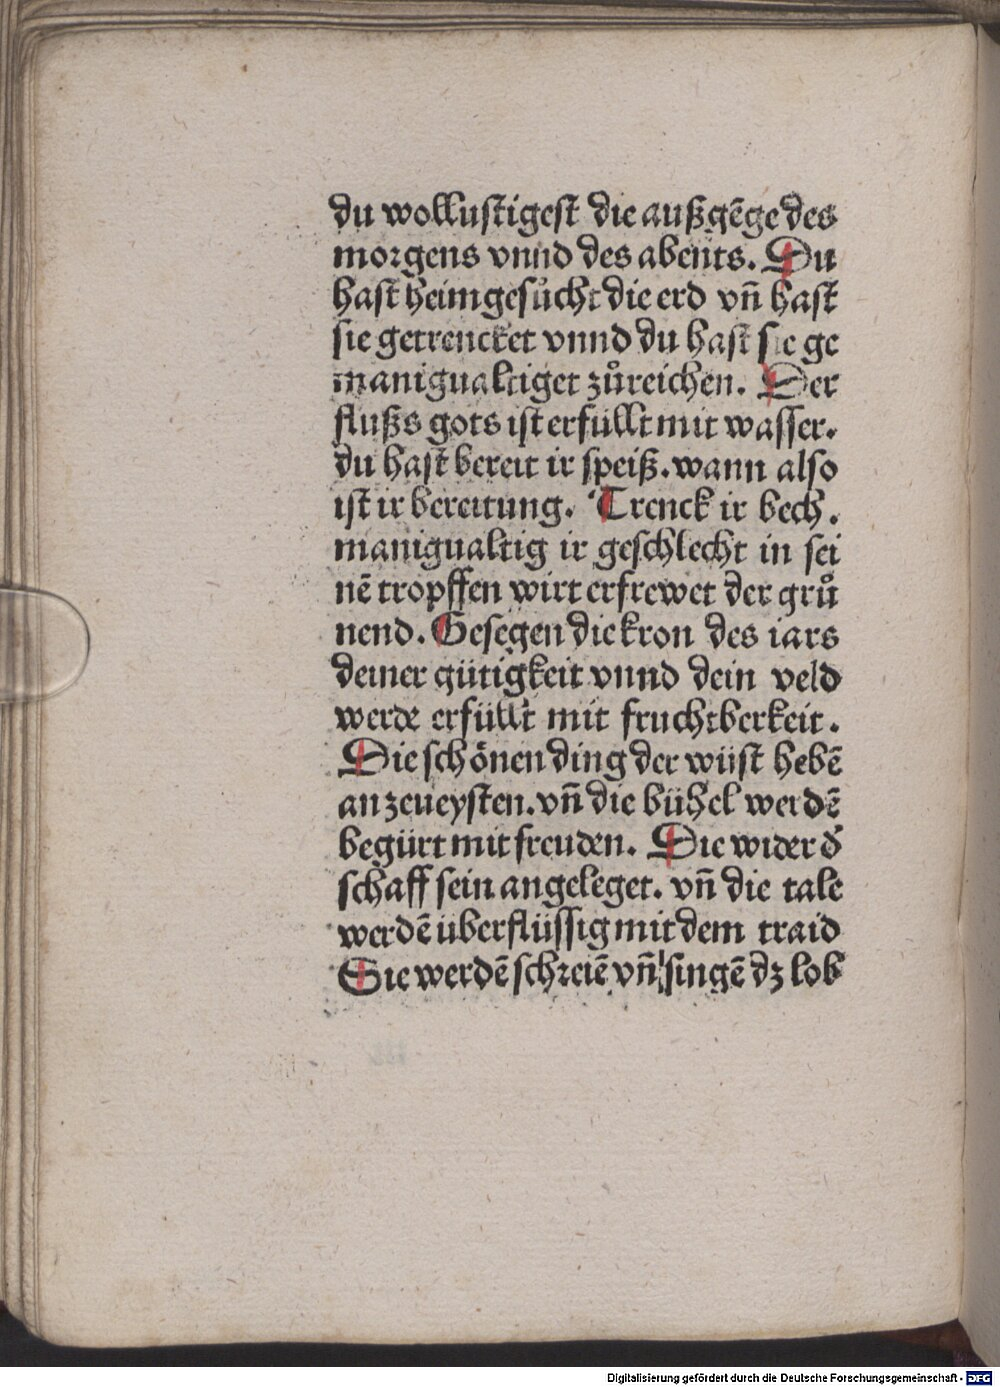 du wollustigest die außgēge des
morgens vnnd des abents. Du
hast heimgesůcht die erd vn̄ hast
sie getrencket vnnd du hast sie ge
manigualtiget zůreichen. Der
flußs gots ist erfüllt mit wasser.
du hast bereit ir speiß. wann also
ist ir bereitung. Trenck ir bech.
manigualtig ir geschlecht in sei
nē tropffen wirt erfrewet der grů
nend. Gesegen die kron des iars
deiner gütigkeit vnnd dein veld
werde erfüllt mit fruchtberkeit.
Die schönen ding der wüst hebē
an zeueysten. vn̄ die bühel werdē
begürt mit freuden. Die wider d̄
schaff sein angeleget. vn̄ die tale
werdē überflüssig mit dem traid
Sie werdē schreiē vn̄ singē dz lob
Digitalisierung gefördert durch die Deutsche Forschungsgemeinschaft - DFG